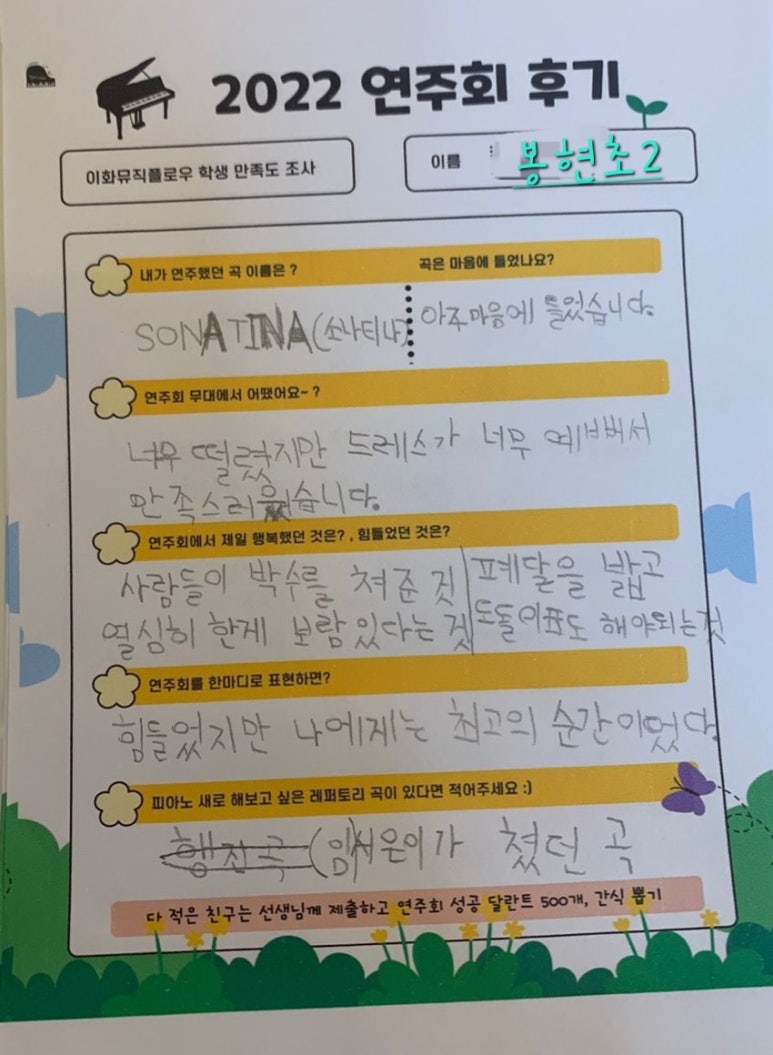 2022 연주회 후기
이화뮤직플로우 학생 만족도 조사
이름 봉현초2
내가 연주했던 곡 이름은 ? 곡은 마음에 들었나요?
SONATINA(소나티나) 아주마음에 들었습니다.
연주회 무대에서 어땠어요~ ?
너무 떨렸지만 드레스가 너무 예뻐서
만족스러웠습니다.
연주회에서 제일 행복했던 것은? , 힘들었던 것은?
사람들이 박수를 쳐준 것 페달을 밟고
열심히 한게 보람있다는 것 도돌이표도 해야되는것
연주회를 한마디로 표현하면?
힘들었지만 나에게는 최고의 순간이었다.
피아노 새로 해보고 싶은 레퍼토리 곡이 있다면 적어주세요 :)
행진곡 (임서은이가 쳤던 곡
다 적은 친구는 선생님께 제출하고 연주회 성공 달란트 500개, 간식 뽑기